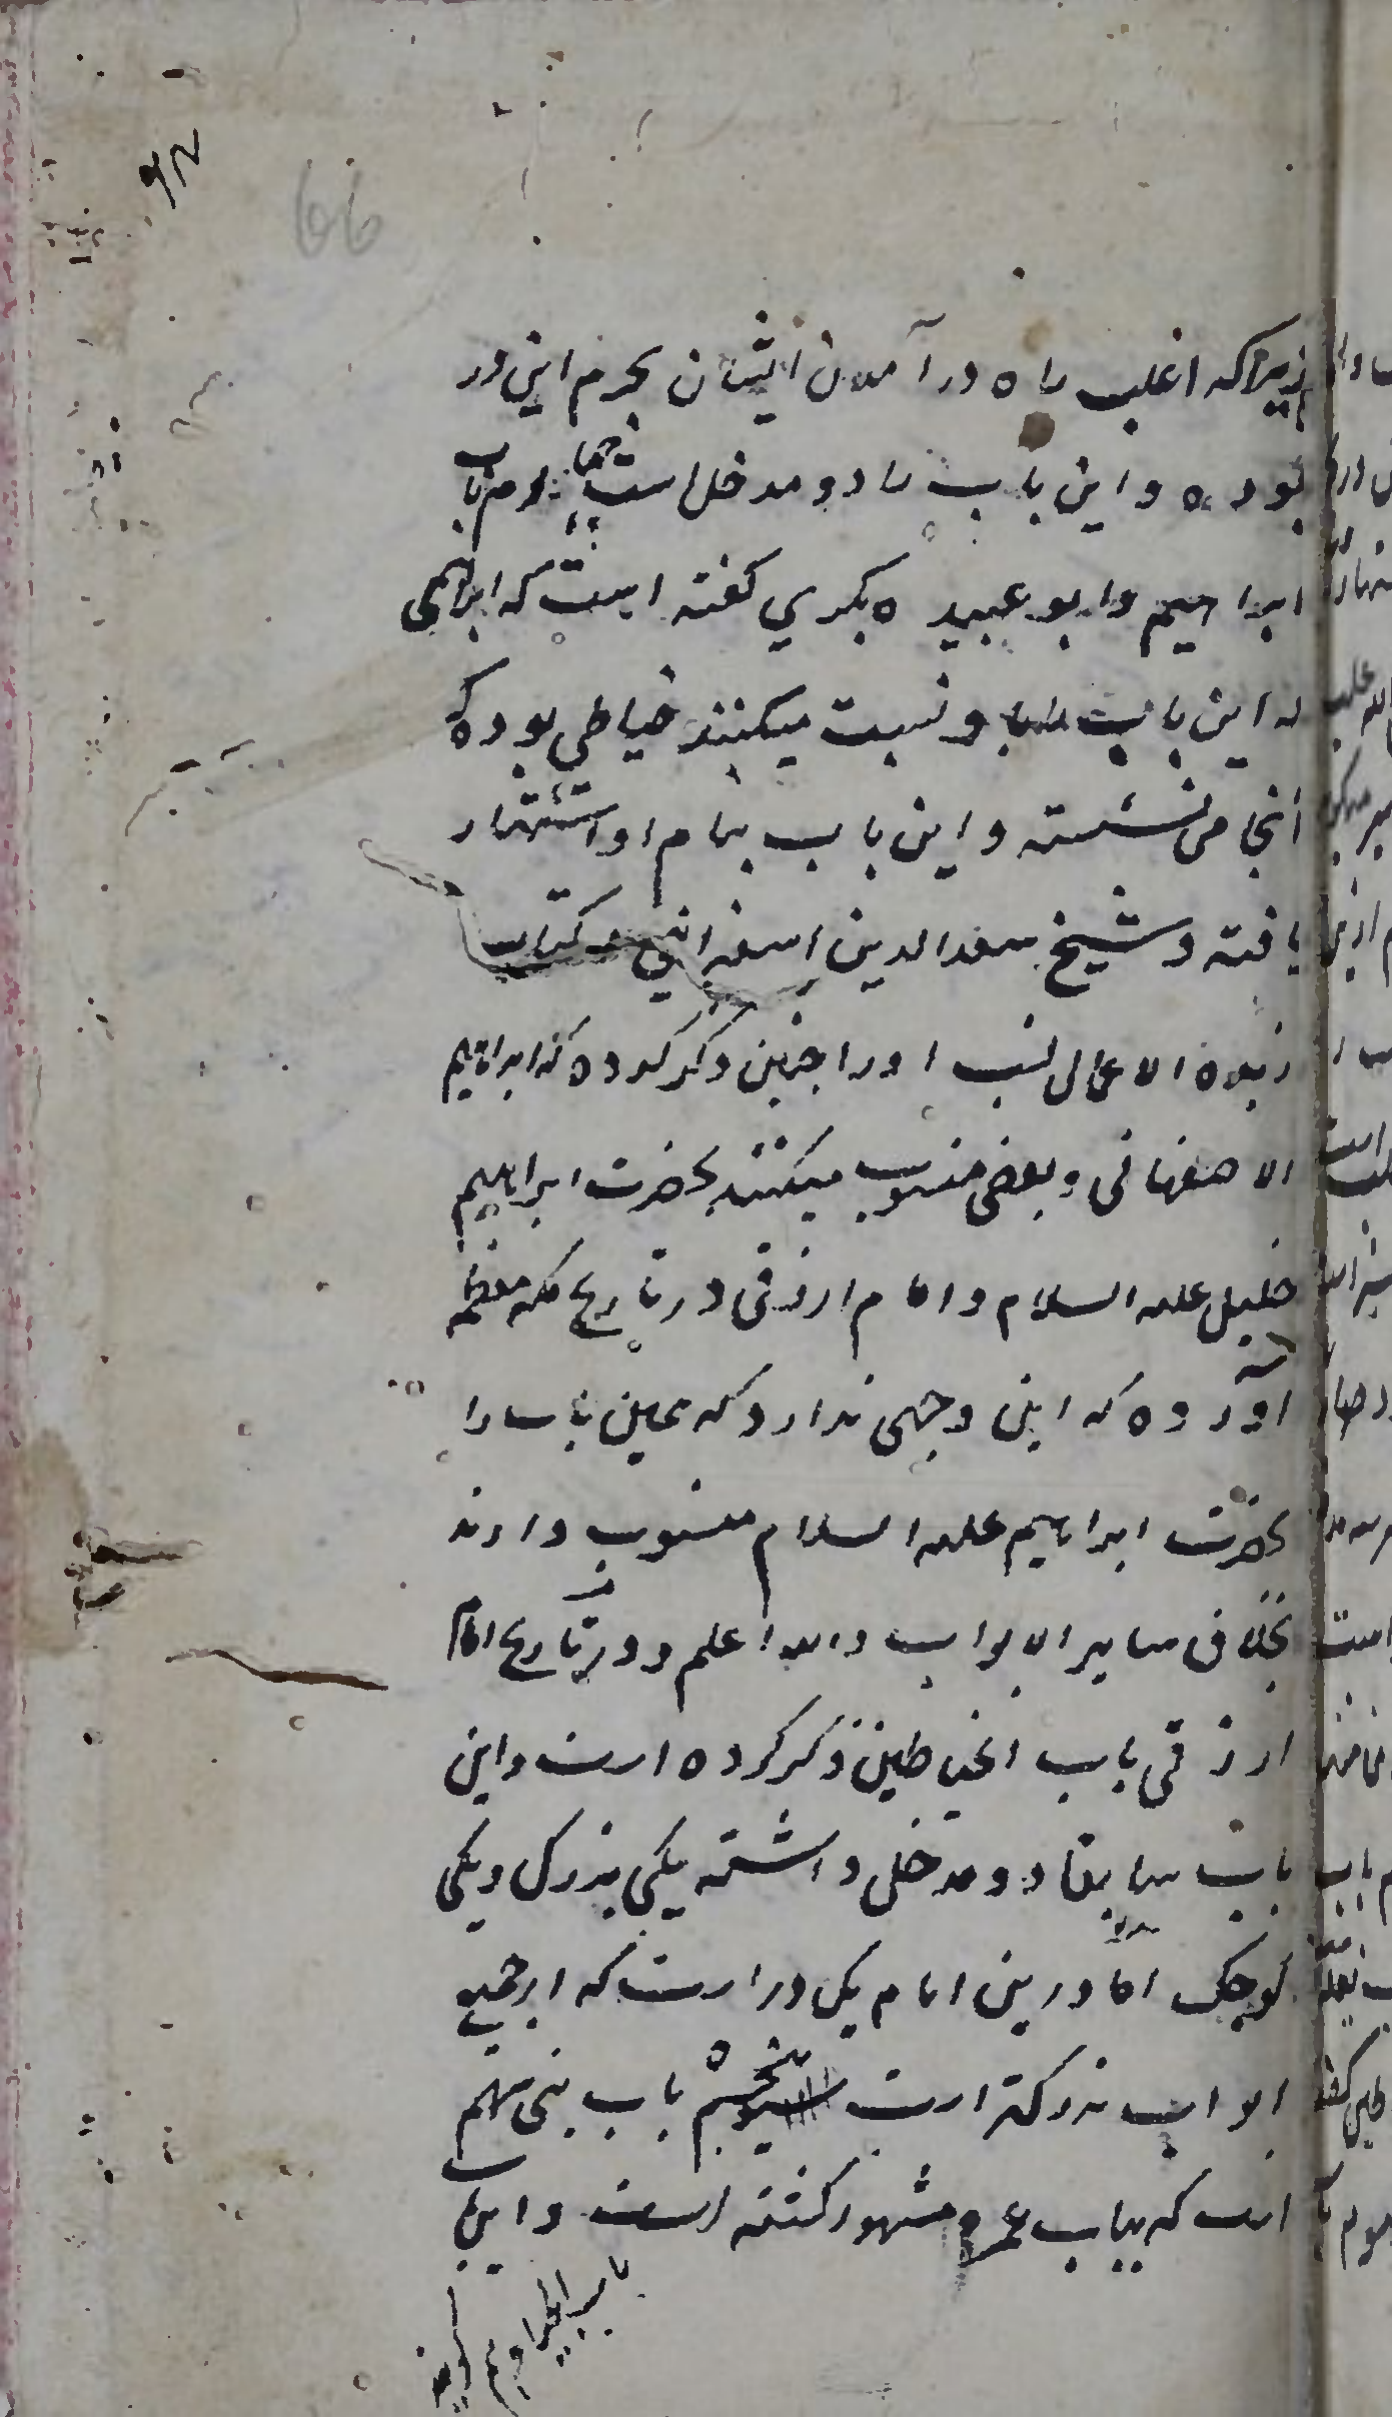 66
زیرا که اغلب راه در آمدن ایشان بحرم این در
بوده و این باب را دو مدخل است چهارم باب
ابراهیم و ابو عبیده بکری کفته است که ابراهیمی
که این باب را باو نسبت میکنند خیاطی بوده که
آنجا می نشسته و این باب بنام او اشتهار
یافته و شیخ سعد الدین اسفراینی در کتاب
زبدة الاعمال نسب او را چنین ذکر کرده که ابراهیم
الاصفهانی و بعضی منسوب میکنند بحضرت ابراهیم
خلیل علیه السلام و امام ارزقی در تاریخ مکه معظمه
آورده که این وجهی ندارد که همین باب را
بحضرت ابراهیم علیه السلام منسوب دارند
بخلاف سایر الابواب والله اعلم و در تاریخ امام
ارزقی باب الخیاطین ذکر کرده است و این
باب سابقا دو مدخل داشته یکی بزرک و یکی
کوچک اما درین ایام یک در است که از جمیع
ابواب بزرکتر است پنجم باب بنی سهم
است که بباب عمره مشهور کشته است و این باب